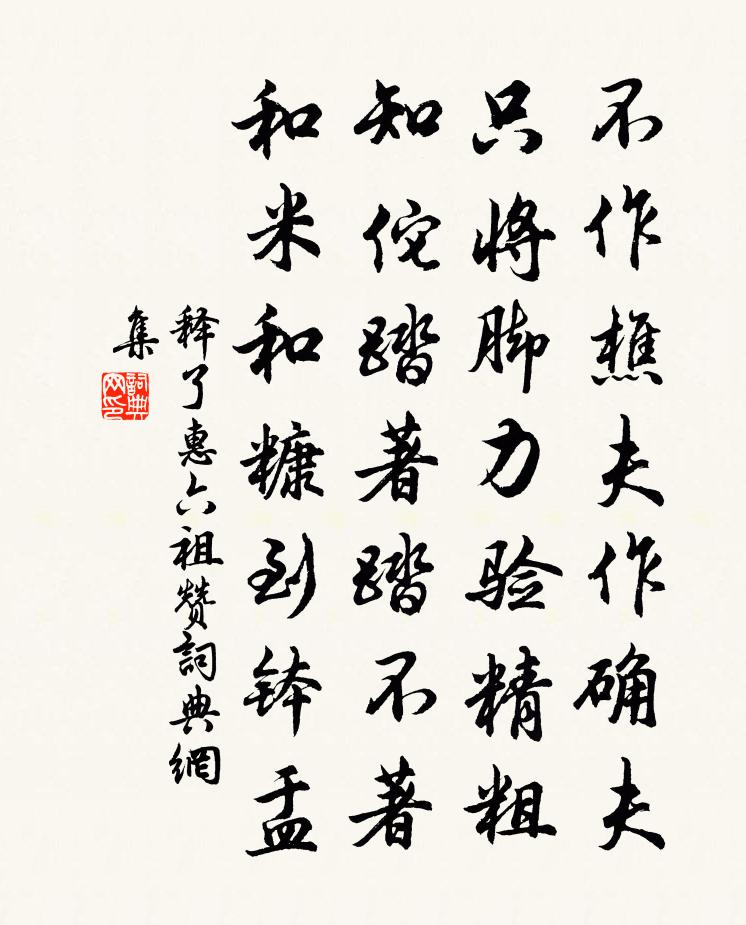 不作樵夫作确夫
只将脚力验精粗
知佗踏著踏不著
和米和糠到钵盂
释了惠六祖赞詞典網
集
詞典网印